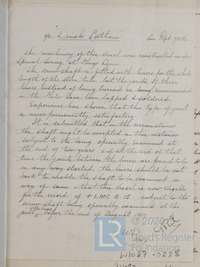 The machinery of this vessel was constructed under
special survey at King's Lynn
The screw shaft is fitted with liners for the whole
length of the stern tube but the joints of these
liners instead of being burned as being recommended
in the Rules have been lapped & soldered.
Experience has shown that this type of joint
is never permanently satisfactory
It is submitted that in the circumstances
the shaft might be accepted in this instance
subject to its being specially examined at
the end of two years and if at the end of that
time the joints between the liners are found to be
in any way started, the liners should be cut
back to enable the shaft to be examined in
way of same & that this vessel is now eligible
for the record of + LMC 8.18 subject to the
screw shaft being specially examined at the
before the end of August 1920
© 2020
Lloyd's Register
Foundation
W1037-0238